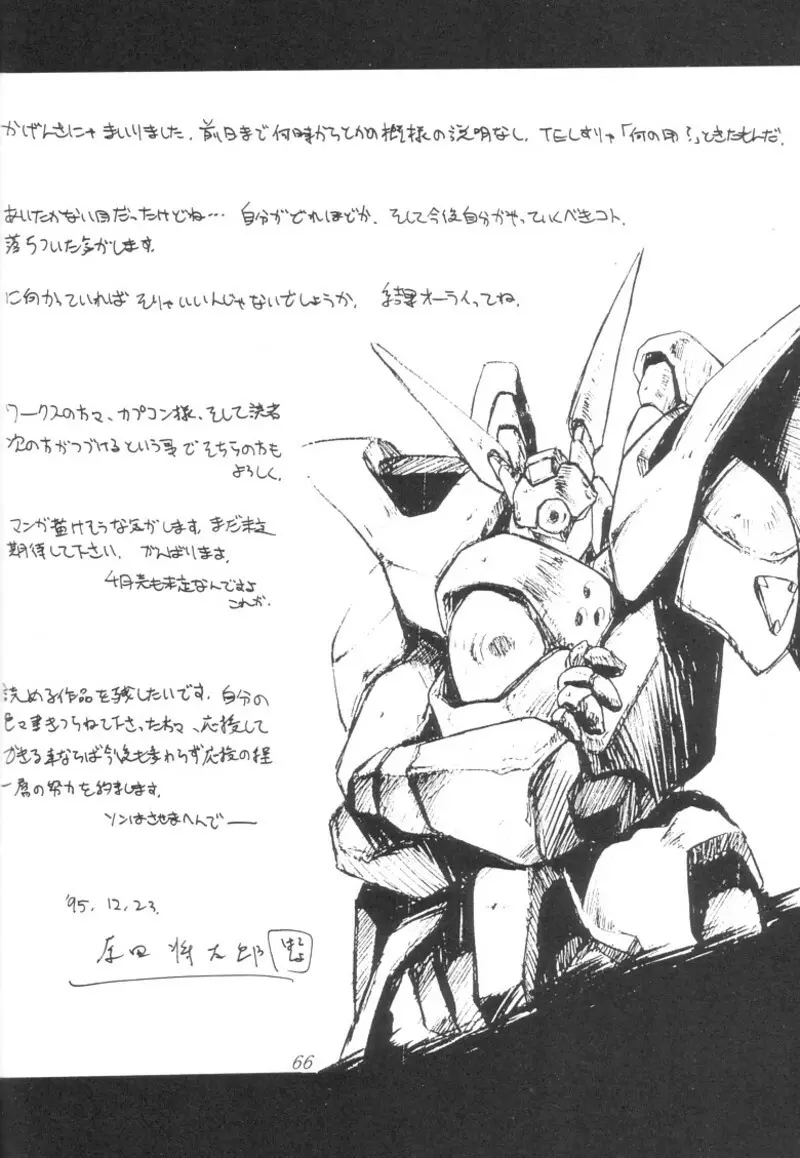 かげんさにゃ まいりました. 前日まで何時からとかの模様の説明なし. TELすりゃ「何の用?」ときたもんだ.
あいたかない目だったけどね… 自分がどれほどか. そして今後自分がやっていくべきコト.
落ちついた気がします.
に向かっていれば そりゃいいんじゃないでしょうか. 結果オーライってね.
ワークスの方々、カプコン様、そして読者
次の方がつづけるという事でそちらの方も
よろしく.
マンガ描けそうな気がします. まだ未定
期待して下さい. がんばります.
4月売も未定なんですよ
これが.
読める作品を残したいです. 自分の
色々書きつらねて下さった方々、応援して
できる事ならば今後も変わらず応援の程
一層の努力を約束します.
ソンはさせまへんでー
'95. 12. 23.
原田 将太郎
66